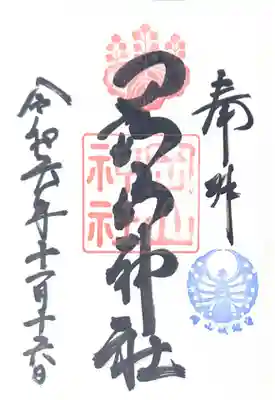 奉拝
岡山神社
岡山
神社
令和六年十一月十六日